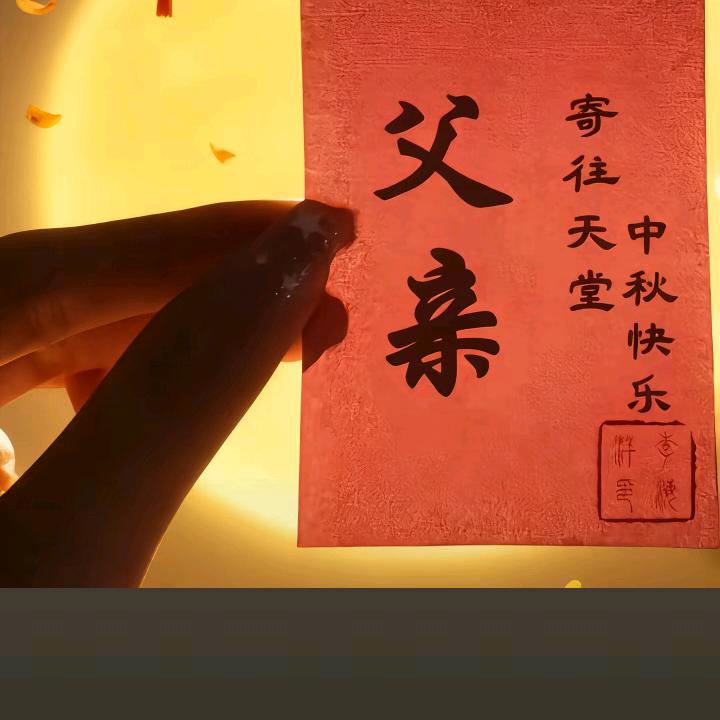 父亲
寄往天堂
中秋快乐